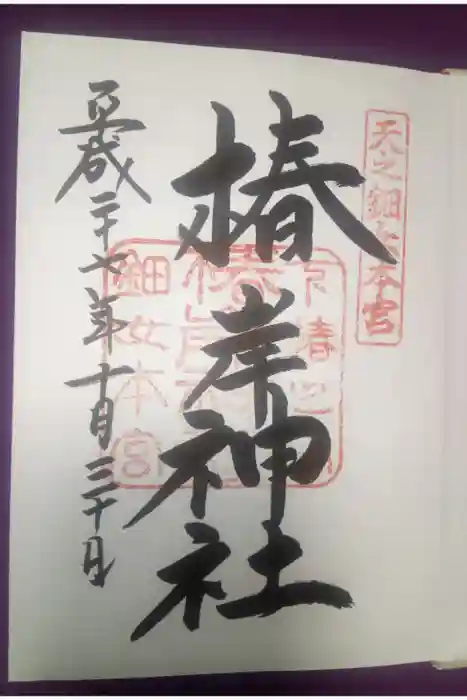 天之鈿女本宮
椿岸神社
平成二十七年十月三十日